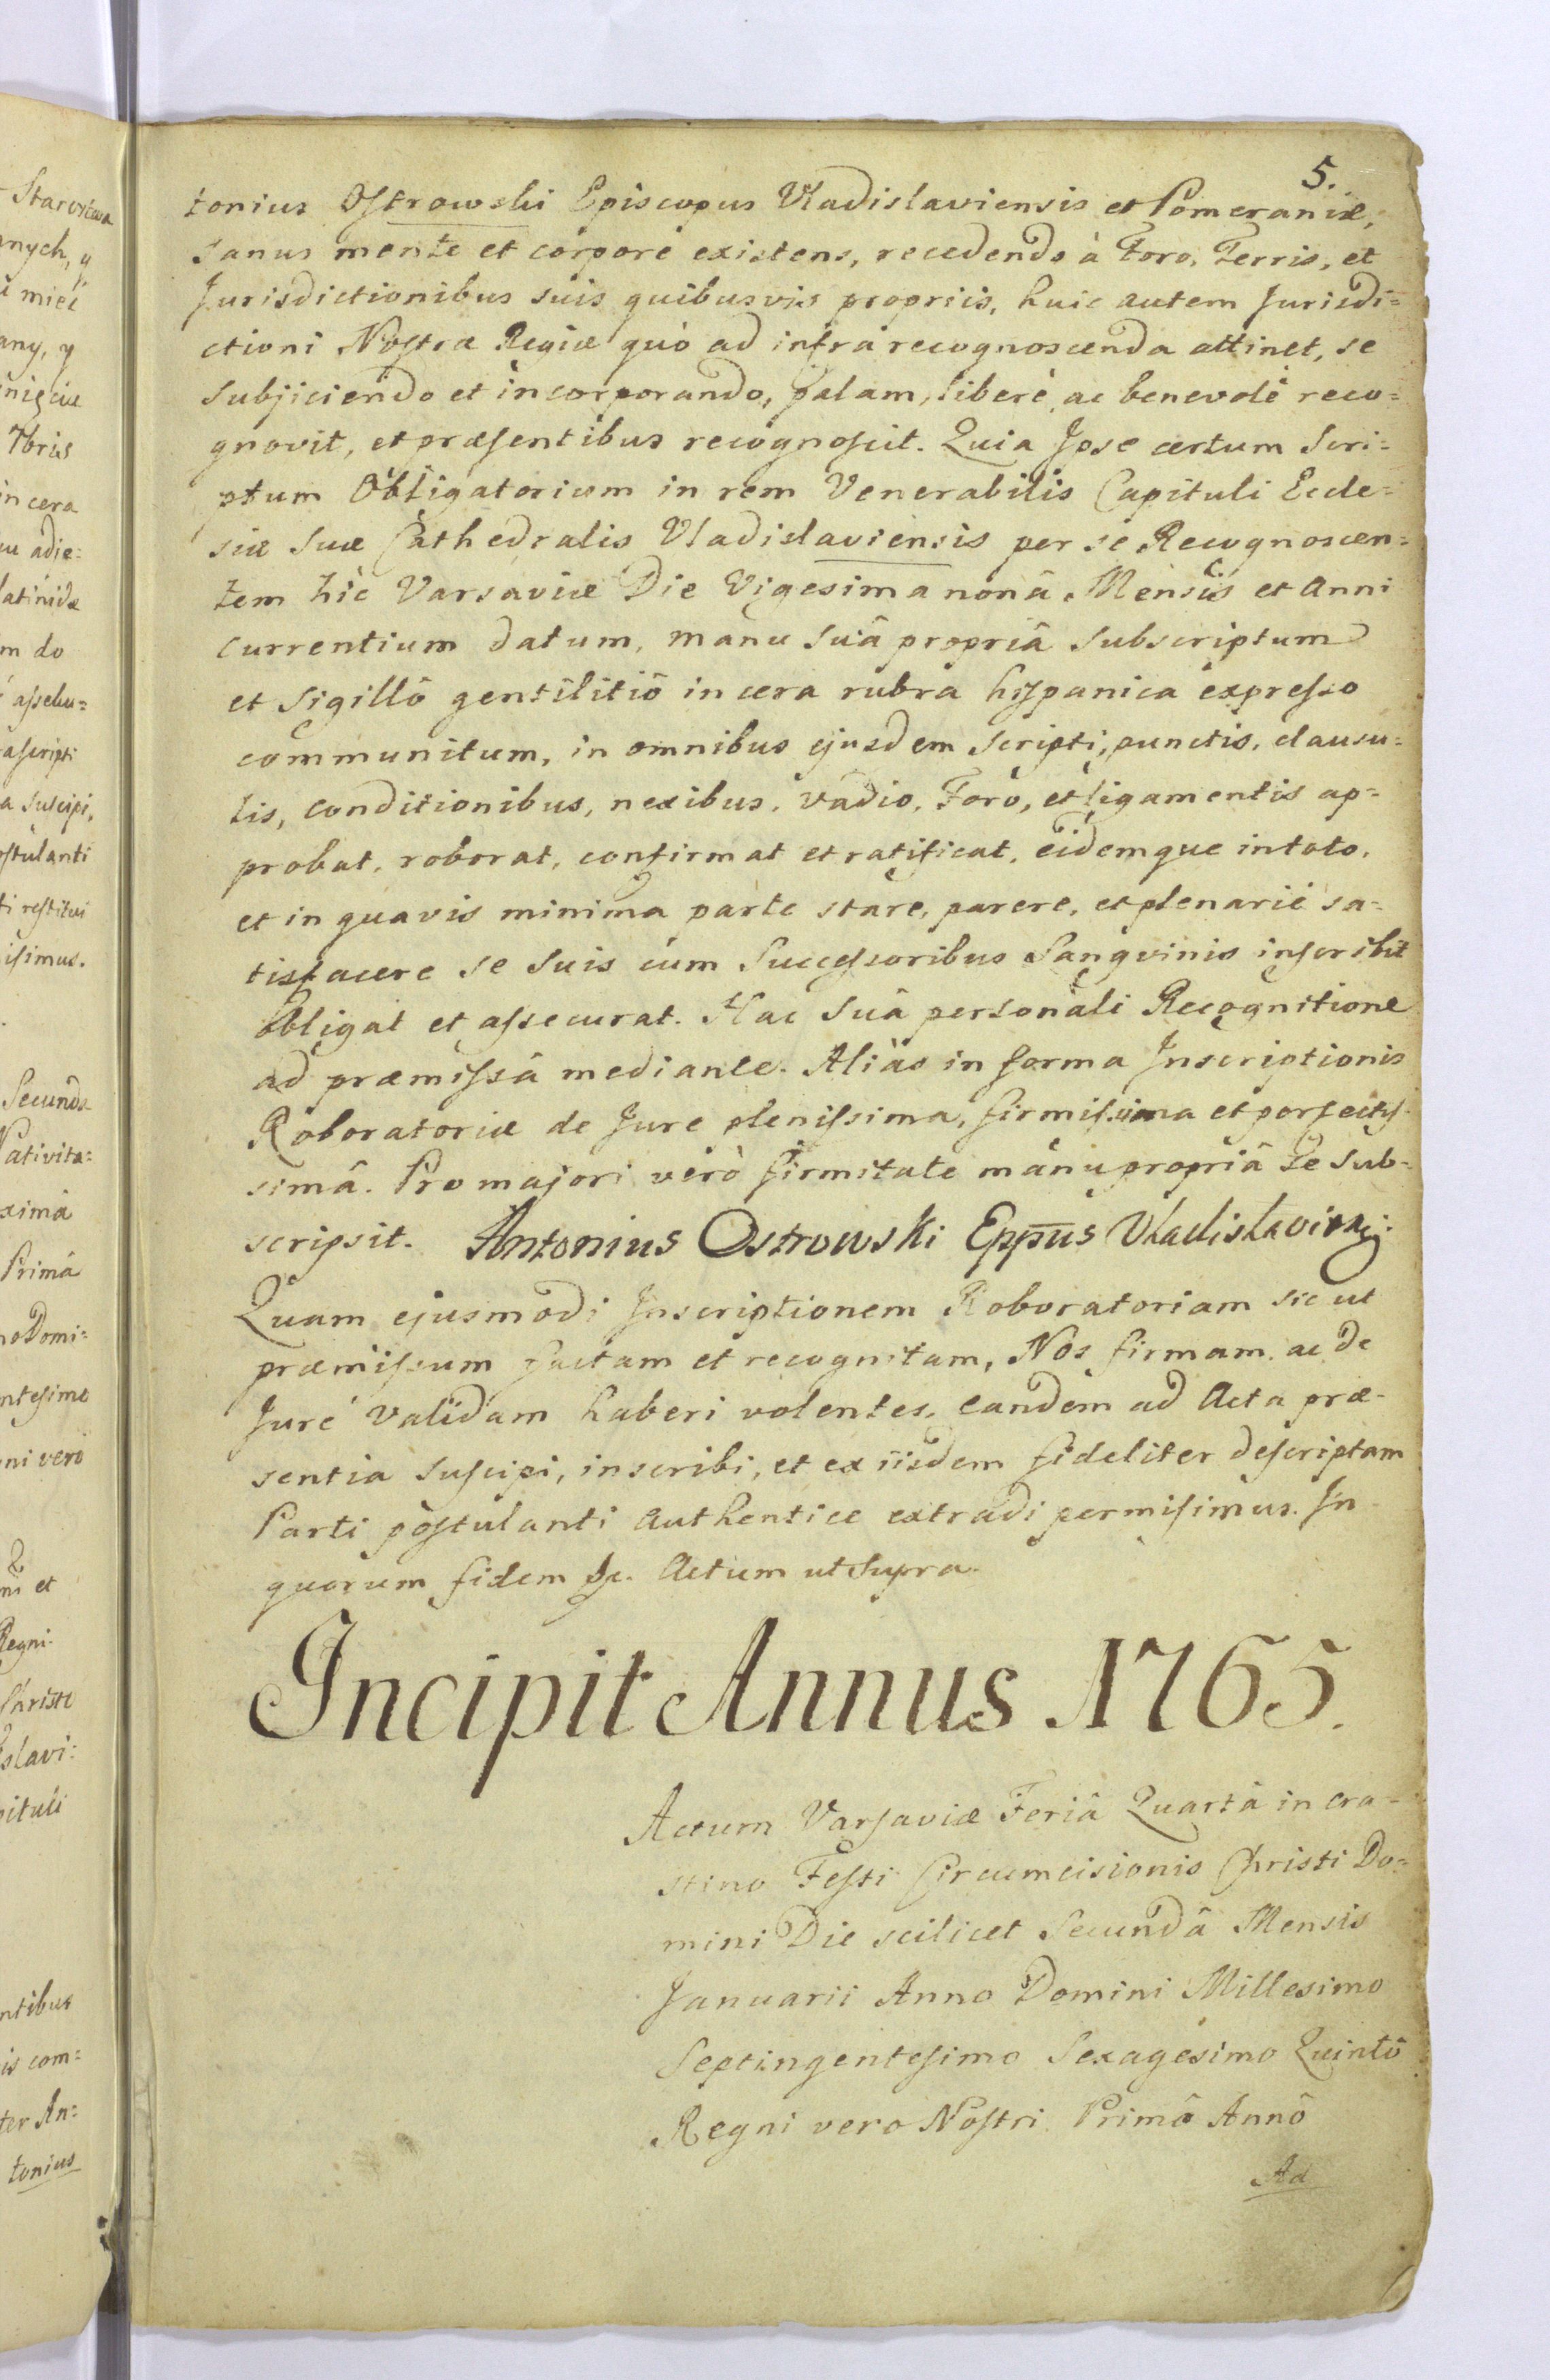 5.
tonius Ostrowski Episcopus Vladislaviensis et Pomeraniæ,
sanus mente et corpore existens, recedendo à Foro, Terris, et
Jurisdictionibus suis quibusvis propriis, huic autem Jurisdi=
ctioni Nostræ Regiæ quò ad infra recognoscenda attinet, se
subjiciendo et incorporando, palam, liberè, ac benevolè reco=
gnovit, et præsentibus recognoscit. Quia Ipse certum Scri=
ptum Obligatorium in rem Venerabilis Capituli Eccle=
siæ Suæ Cathedralis Vladislaviensis per se Recognoscen=
tem hic Varsaviæ Die Vigesima nonâ Mensis et Anni
currentium datum, manu suâ propriâ subscriptum
et Sigillô gentilitiô in cera rubra hispanica expresso
communitum, in omnibus ejusdem Scripti, punctis, clausu=
lis, conditionibus, nexibus, vadio, Foro, et ligamentis ap=
probat, roborat, confirmat et ratificat, eidemque in toto,
et in quavis minima parte stare, parere, et plenariè sa=
tisfacere se suis cum Successoribus Sangvinis inscribit
obligat et assecurat. Hac Suâ personali Recognitione
ad præmissâ mediante. Aliàs in forma Inscriptionis
Roboratoriæ de Jure plenissima, firmissima et perfectis=
simâ. Pro majori verò firmitate manu propriâ se sub=
scripsit. Antonius Ostrowski Eppus Vladislavien:
Quam ejusmodi Inscriptionem Roboratoriam sic ut
præmissum factam et recognitam, Nos firmam, ac de
Jure validam haberi volentes, eandem ad Acta præ=
sentia suscipi, inscribi, et ex iisdem fideliter descriptam
Parti postulanti authentice extradi permisimus. In
quorum fidem &c. Actum ut supra.
Incipit Annus 1765.
Actum Varsaviæ Feriâ Quartâ in cra=
stino Festi Circumcisionis Christi Do=
mini Die scilicet Secundâ Mensis
Januarii Anno Domini Millesimo
Septingentesimo Sexagesimo Quintô
Regni vero Nostri Primô Annô
Ad